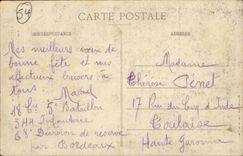 54
CARTE POSTALE
CORRESPONDANCE
ADRESSE
Mes meilleurs voeux de
bonne fête et mes
affectueux baisers à
tous. Marcel
18 Cie 5e Bataillon
344 Infanterie
68e Division de reserve
par Bordeaux
Madame
Thérèse
17 Rue du
Toulouse
Haute Garonne